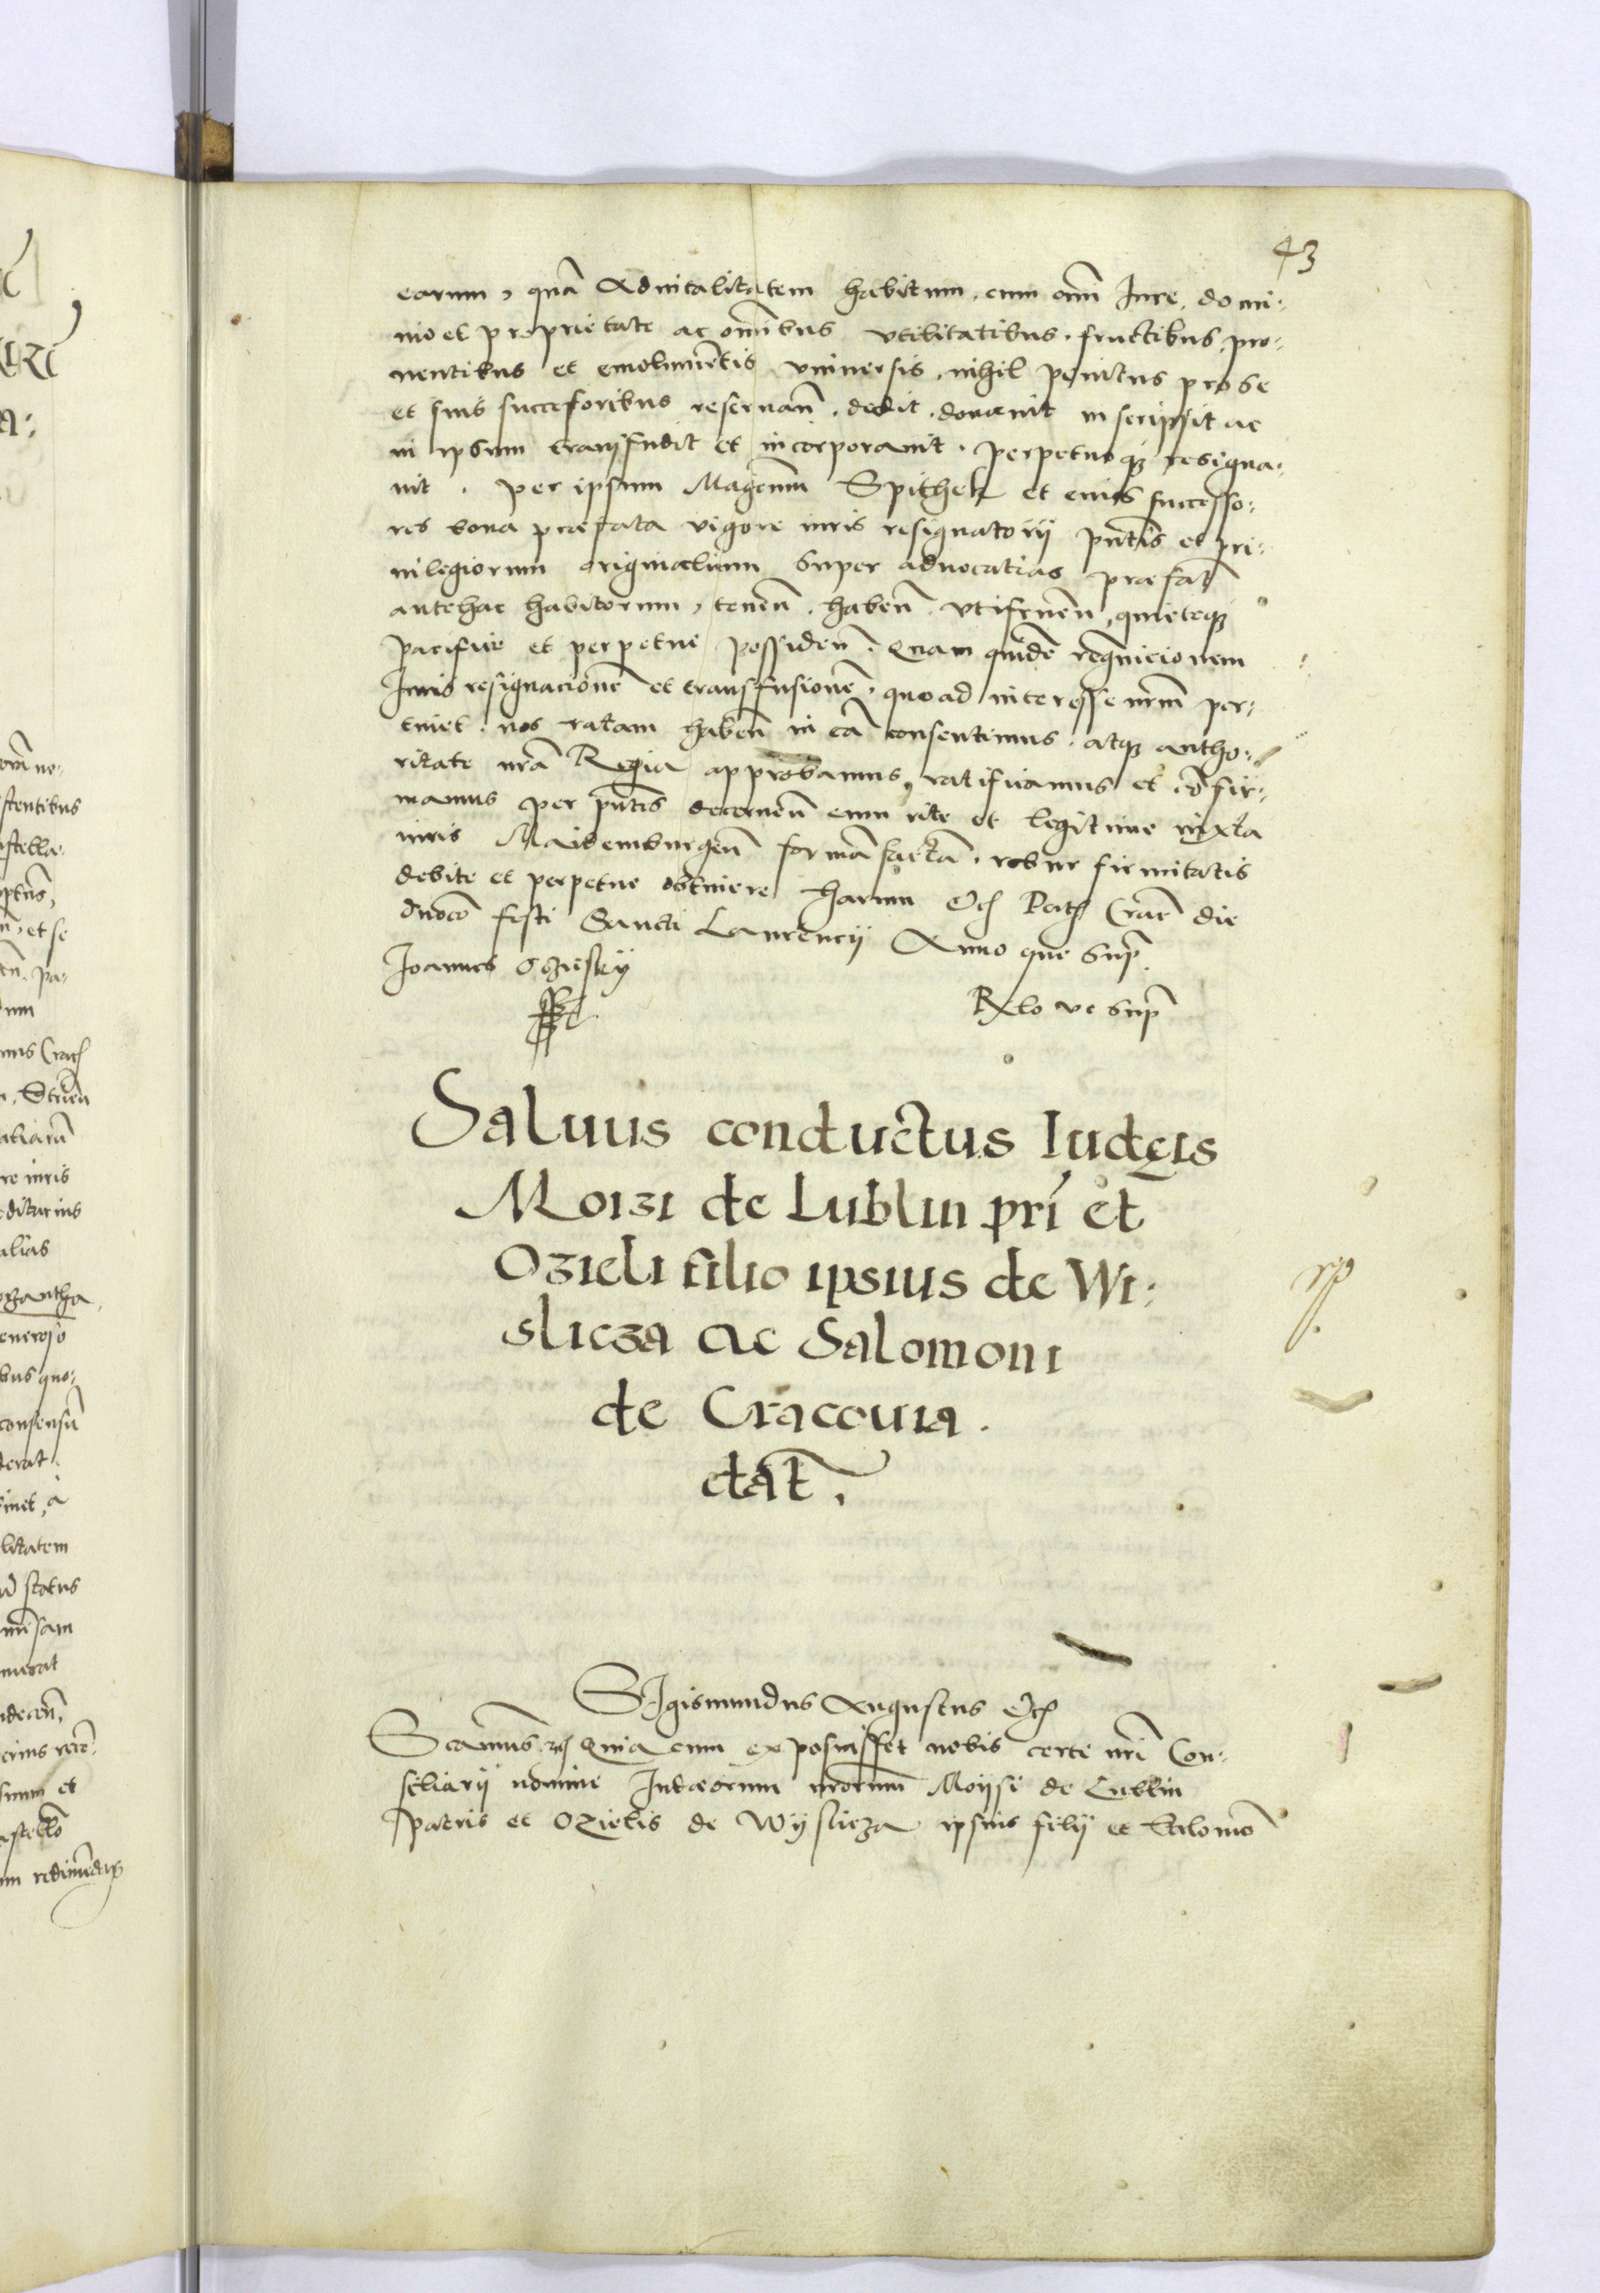 43
earum, quā Advitalitatem habitum, cum omī Iure, domi:
nio et proprietate ac omībus vtilitatibus, fructibus, pro-
uentibus et emolumētis vniuersis, nihil penitus pro se
et suis successoribus reseruan̄. dedit. donauit inscripsit ac
in ipsum transfudit et incorporauit. perpetuoqȝ resigna:
uit. per ipsum Magcum̄ Spithek et eius successo:
res bona praefata vigore iuris resignatorij pn̄tis et pri:
uilegiorum originalium super aduocatias praefat̄
antehac habitorum, tenen̄. haben̄. vtifruen̄, quieteqȝ
pacifice et perpetue possiden̄. Quam quidē recognicionem
Iuris resignacionē et transfusionē. quoad interesse nrm̄ per:
tinet. nos ratam haben̄ in eā consentimus. atqȝ autho:
ritate nrā Regia approbamus, ratificamus et cōfir:
mamus per pn̄tis decernen̄ eum rite et legitime iuxta
iuris Maideburgen̄ formā factā. robur firmitatis
debite et perpetue obtinere Harum Etc̄ Dat̄ Crac̄ die
festi Sancti Laurencij Anno quo supr̄.
Joannes Oczieskij
Rlo vt supr̄
Saluus conductus Iudęis
Moizi de Lublin pri̅ et
Ozieli filio ipsius de Wi:
slicza ac Salomoni
de Cracouia.
dat̄.
SIgismundus Augustus Etc̄
Quia cum exposuisset nobis certi nri̅ Con:
siliarij nomine Iudaeorum nrorum̄ Moijsi de Lublin
patris et Ozielis de Wijslicza ipsius filij et Salomō